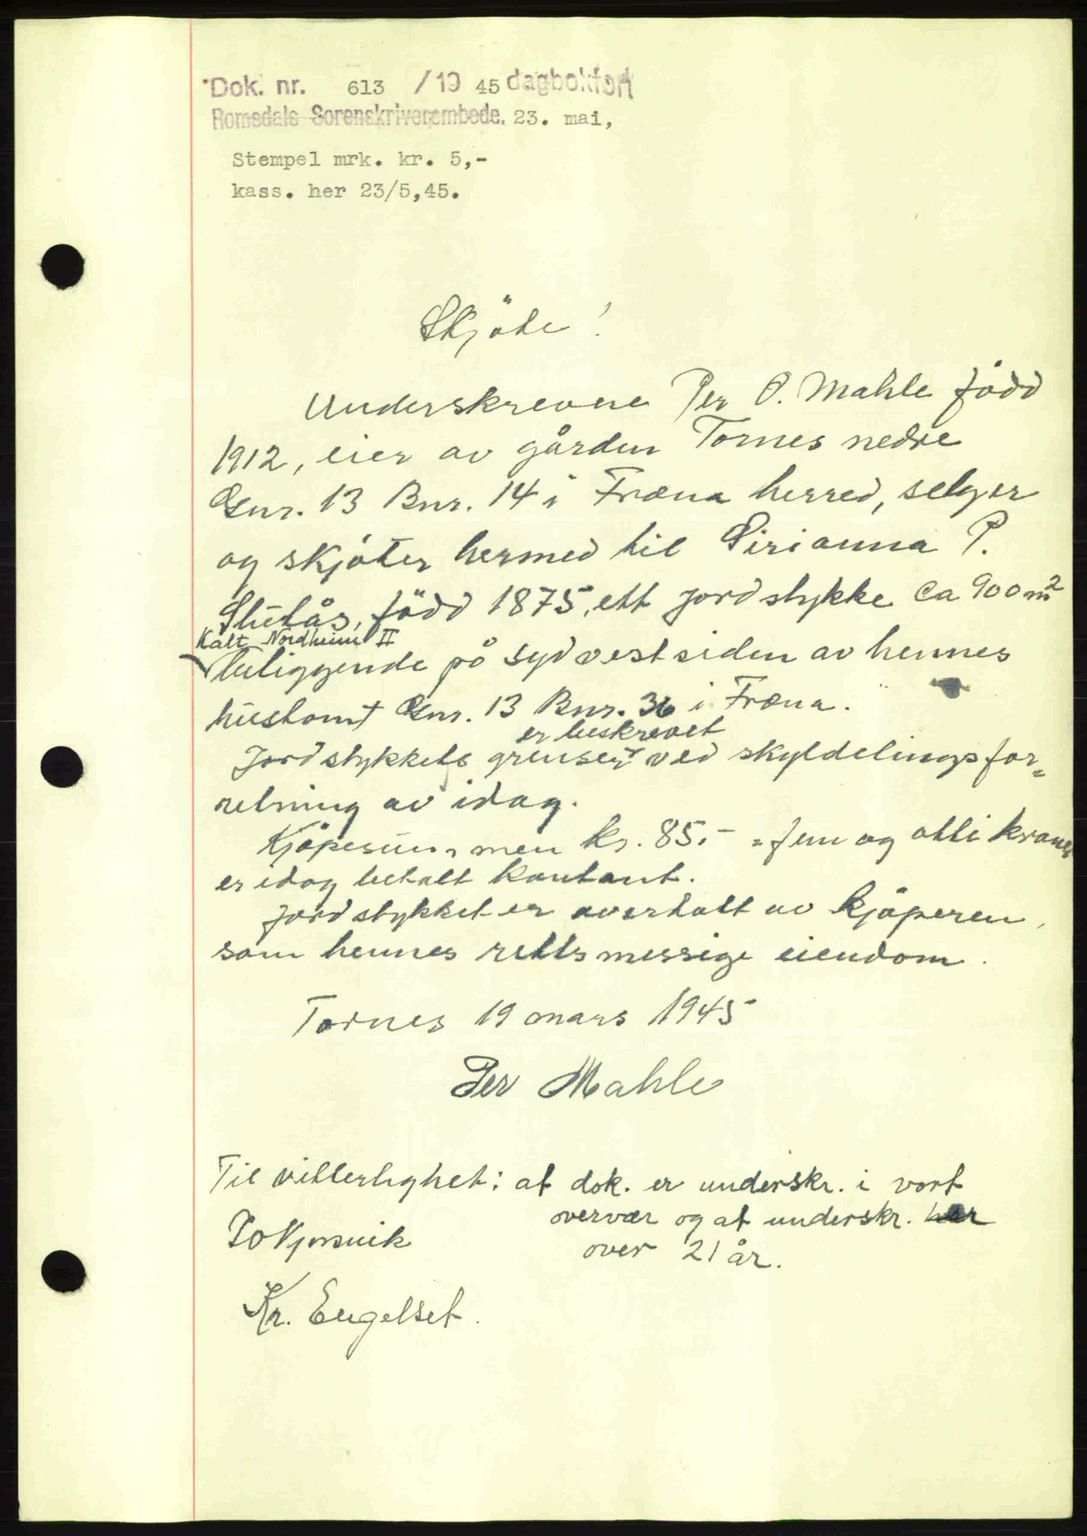 Dok. nr. 613 /19 45 dagbokført
Romsdals Sorenskriverembede. 23. mai,
Stempel mrk. kr. 5,-
kass. her 23/5,45.
Skjöte!
Underskrevne Per O. Mahle född
1912, eier av gården Tornes nedre
Gnr. 13 Bnr. 14 i Fræna herred, selger
og skjöter hermed til Sirianna P.
född 1875, ett jordstykke ca 900 m²
Kalt Nordheim II
beliggende på sydvestsiden av hennes
hustomt Gnr. 13 Bnr. 36 i Fræna.
er beskrevet
Jordstykkets grenser ved skyldelingsfor=
retning av idag.
Kjöpesummen kr. 85.- = fem og otti kroner
er idag betalt kontant.
Jordstykket er overtatt av kjöperen,
som hennes rettsmessige eiendom.
Tornes 19 mars 1945
Per Mahle
Til vitterlighet: at dok. er underskr. i vort
overvær og at underskr. er
over 21 år.
Kr. Engelset.